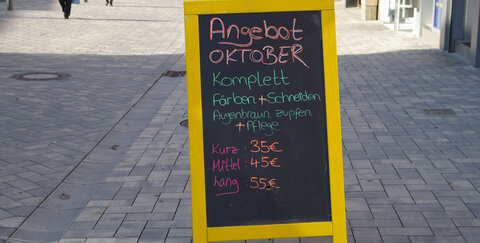 Angebot
OKTOBER
Komplett
Färben + Schneiden
Augenbraun zupfen
+ Pflege
Kurz : 35€
Mittel : 45€
Lang : 55€